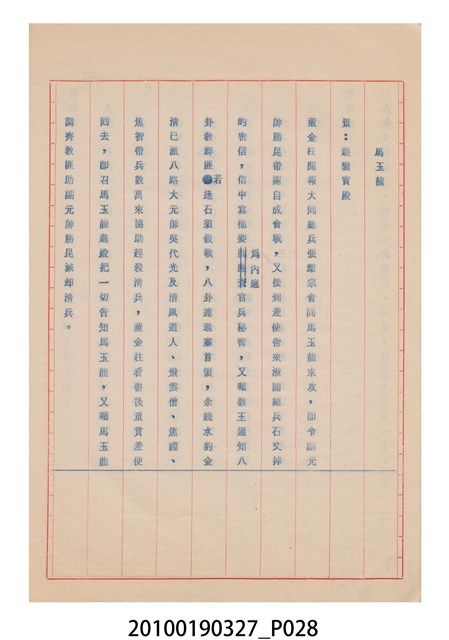 馬玉龍
景：銀鑾寳殿
董金柱聞報大同總兵張耀宗會同馬玉龍來攻，即令副元
帥勝昆帶謝自成會戰，又接到差使帶來潼關總兵石文倬
的密信，信中寫他要爲內應官兵秘密，又囑教王通知八
卦教群匪若逢石須假戰，八卦達瑞羅首領，余錢水豹金
清已派八路大元帥吳代光及清風道人、飛雲僧、焦禮、
焦智帶兵數萬來協助趕殺清兵，董金柱看書後重賞差使
回去，即召馬玉龍進殿把一切告知馬玉龍，又囑馬玉龍
調齊教匪助副元帥勝昆滅却清兵。
20100190327_P028